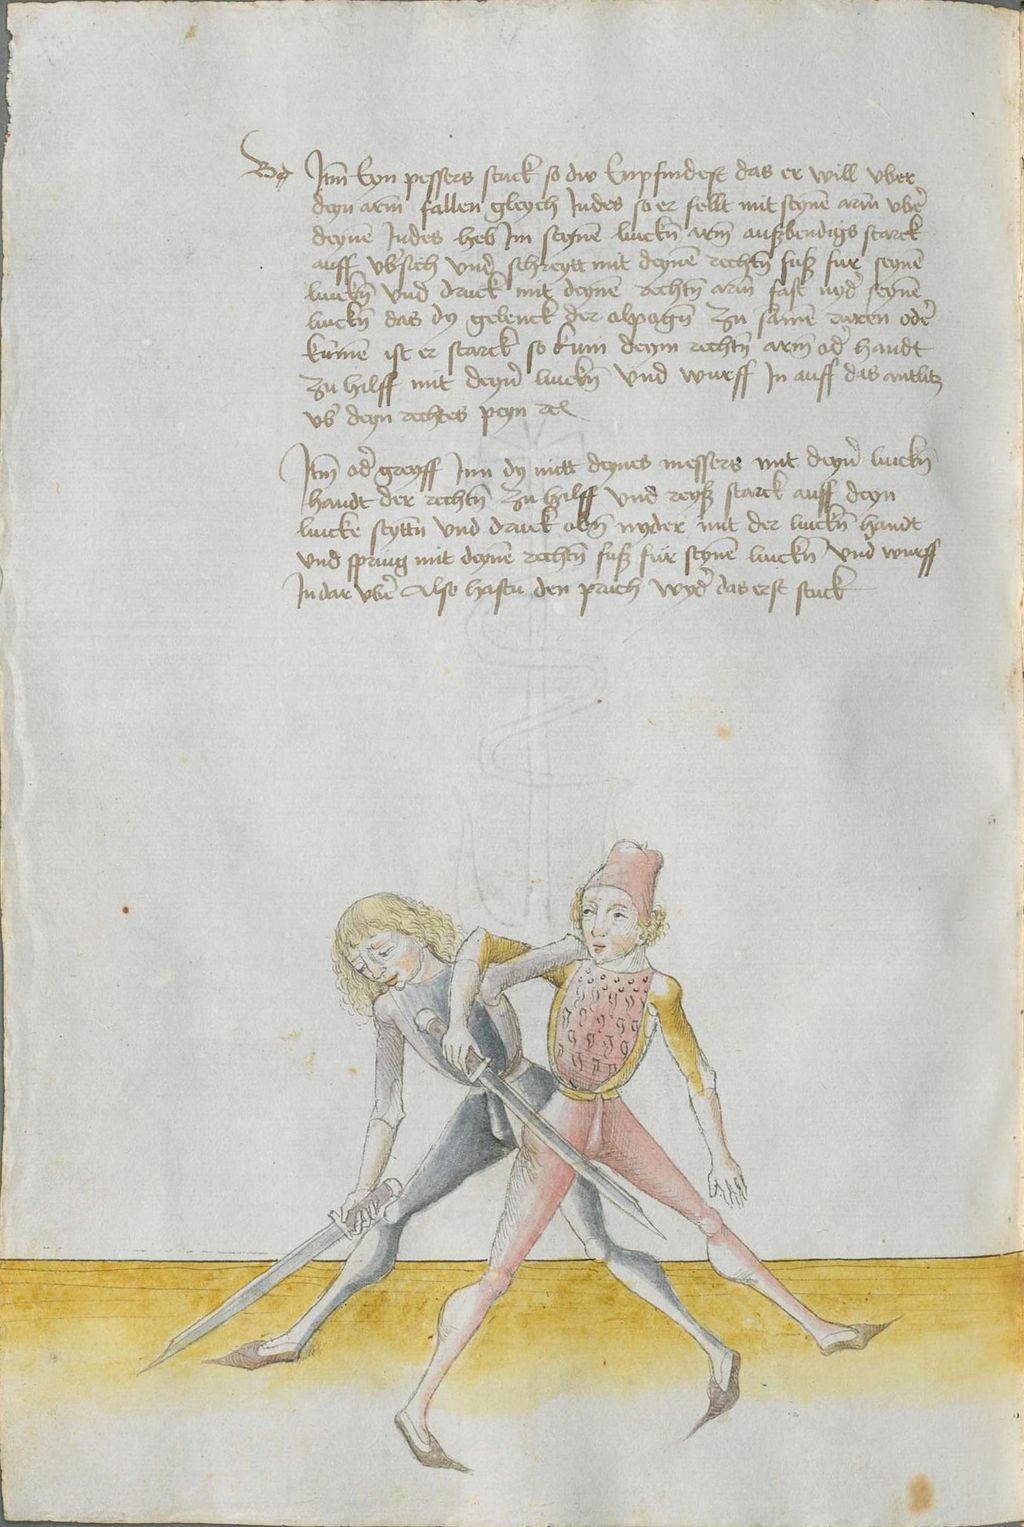 Itm̃ Eyn pessers stuck so dw Enpfindest das er will vber
deyn arm̄ fallen gleych Indes so er fellt mit seynē arm̄ vb̄e
deynē Indes heb Im seynē linckñ arm̄ außbendigs starck
auff vb̓sich vnd schreytt mit deynē rechtñ fuß fur seynē
linckñ vnd druck mit deynē rechtñ arm̄ fast nyd̓ seynē
linckñ das dy gelenck der olpogñ zu samē ruren od̓e
kumē ist er starck so kum deym rechtñ arm̄ od̓ handt
zu hilff mit deyn̓ linckñ vnd wurff In auff das antlitz
vb̓ deyn rechtes peyn ⁊c
Itm̃ od̓ greyff Inn dy mitt deynes messers mit deyn̓ linckñ
handt der rechtñ zu hilff vnd reyß starck auff deyn
lincke seyttñ vnd druck obñ nyder mit der linckñ handt
vnd spring mit deynē rechtñ fuß fur seynē linckñ vnd wurff
In dar vb̓e Also hastu den pruch wyd̓ das erst stuck